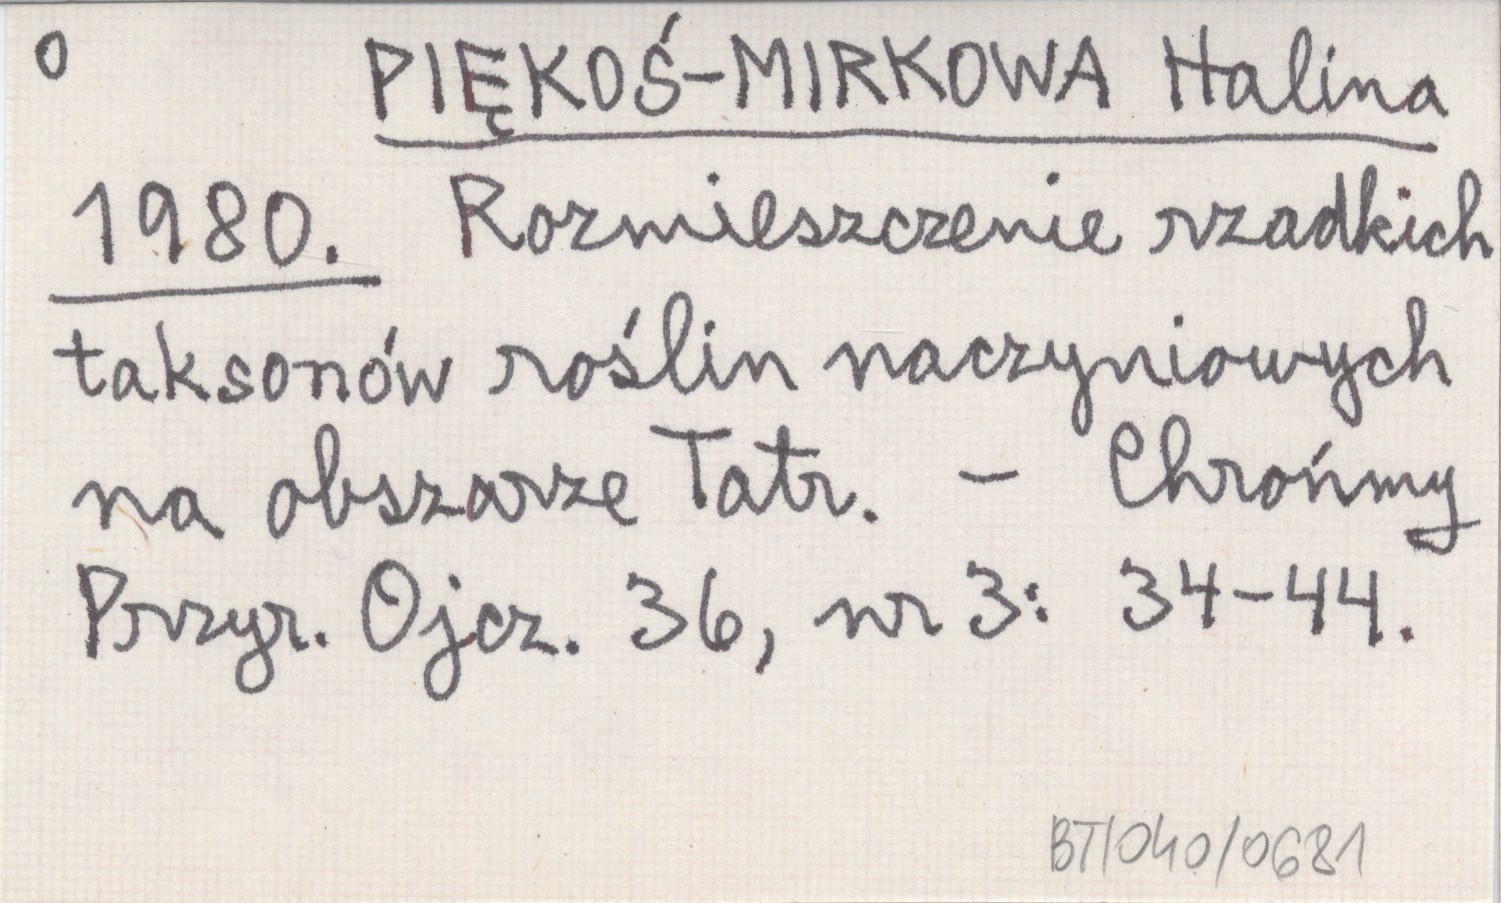 0 PIĘKOŚ-MIRKOWA Halina
1980. Rozmieszczenie rzadkich
taksonów roślin naczyniowych
na obszarze Tatr. - Chrońmy
Przyr. Ojcz. 36, nr 3: 34-44.
BT/040/0681